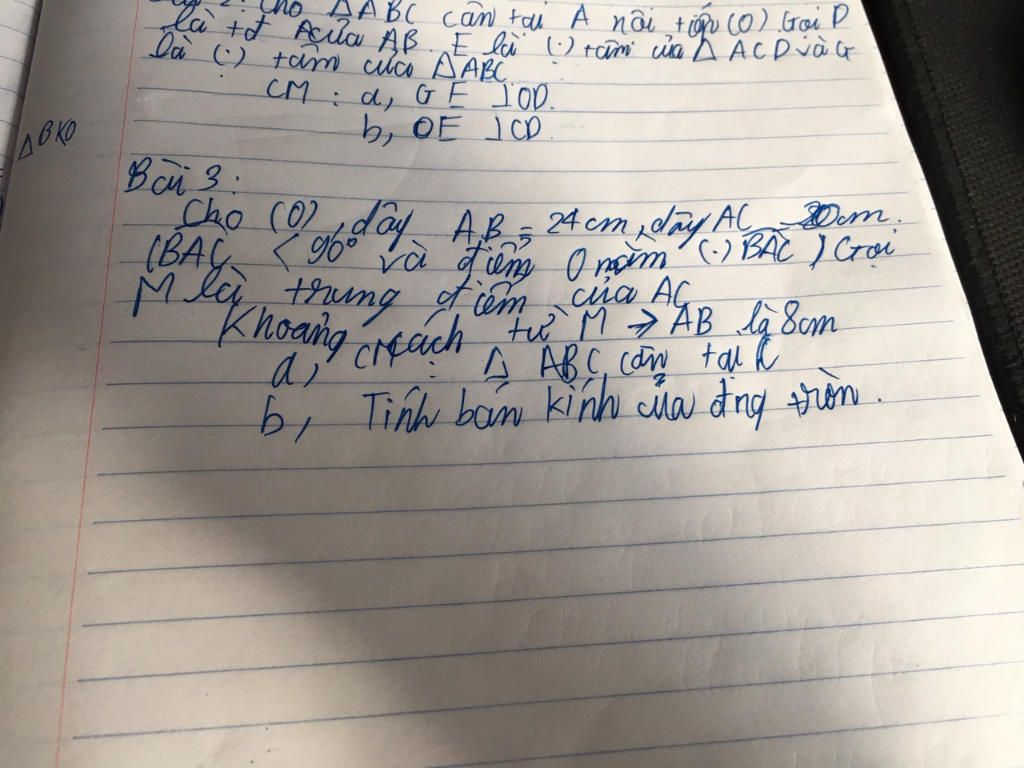 2: Cho ΔABC cân tại A nội tiếp (O). Gọi D
là tđ của AB. E là (.) tâm của Δ ACD và G
là (.) tâm của ΔABC
CM : a, GE ⊥OD.
b, OE ⊥CD.
ΔBKO
Bài 3:
Cho (O), dây AB = 24cm, dây AC = 20cm.
(BAC < 90° và điểm O nằm (.) BAC) Gọi
M là trung điểm của AC
Khoảng cách từ M → AB là 8cm
a, CM : Δ ABC cân tại C
b, Tính bán kính của đng tròn.